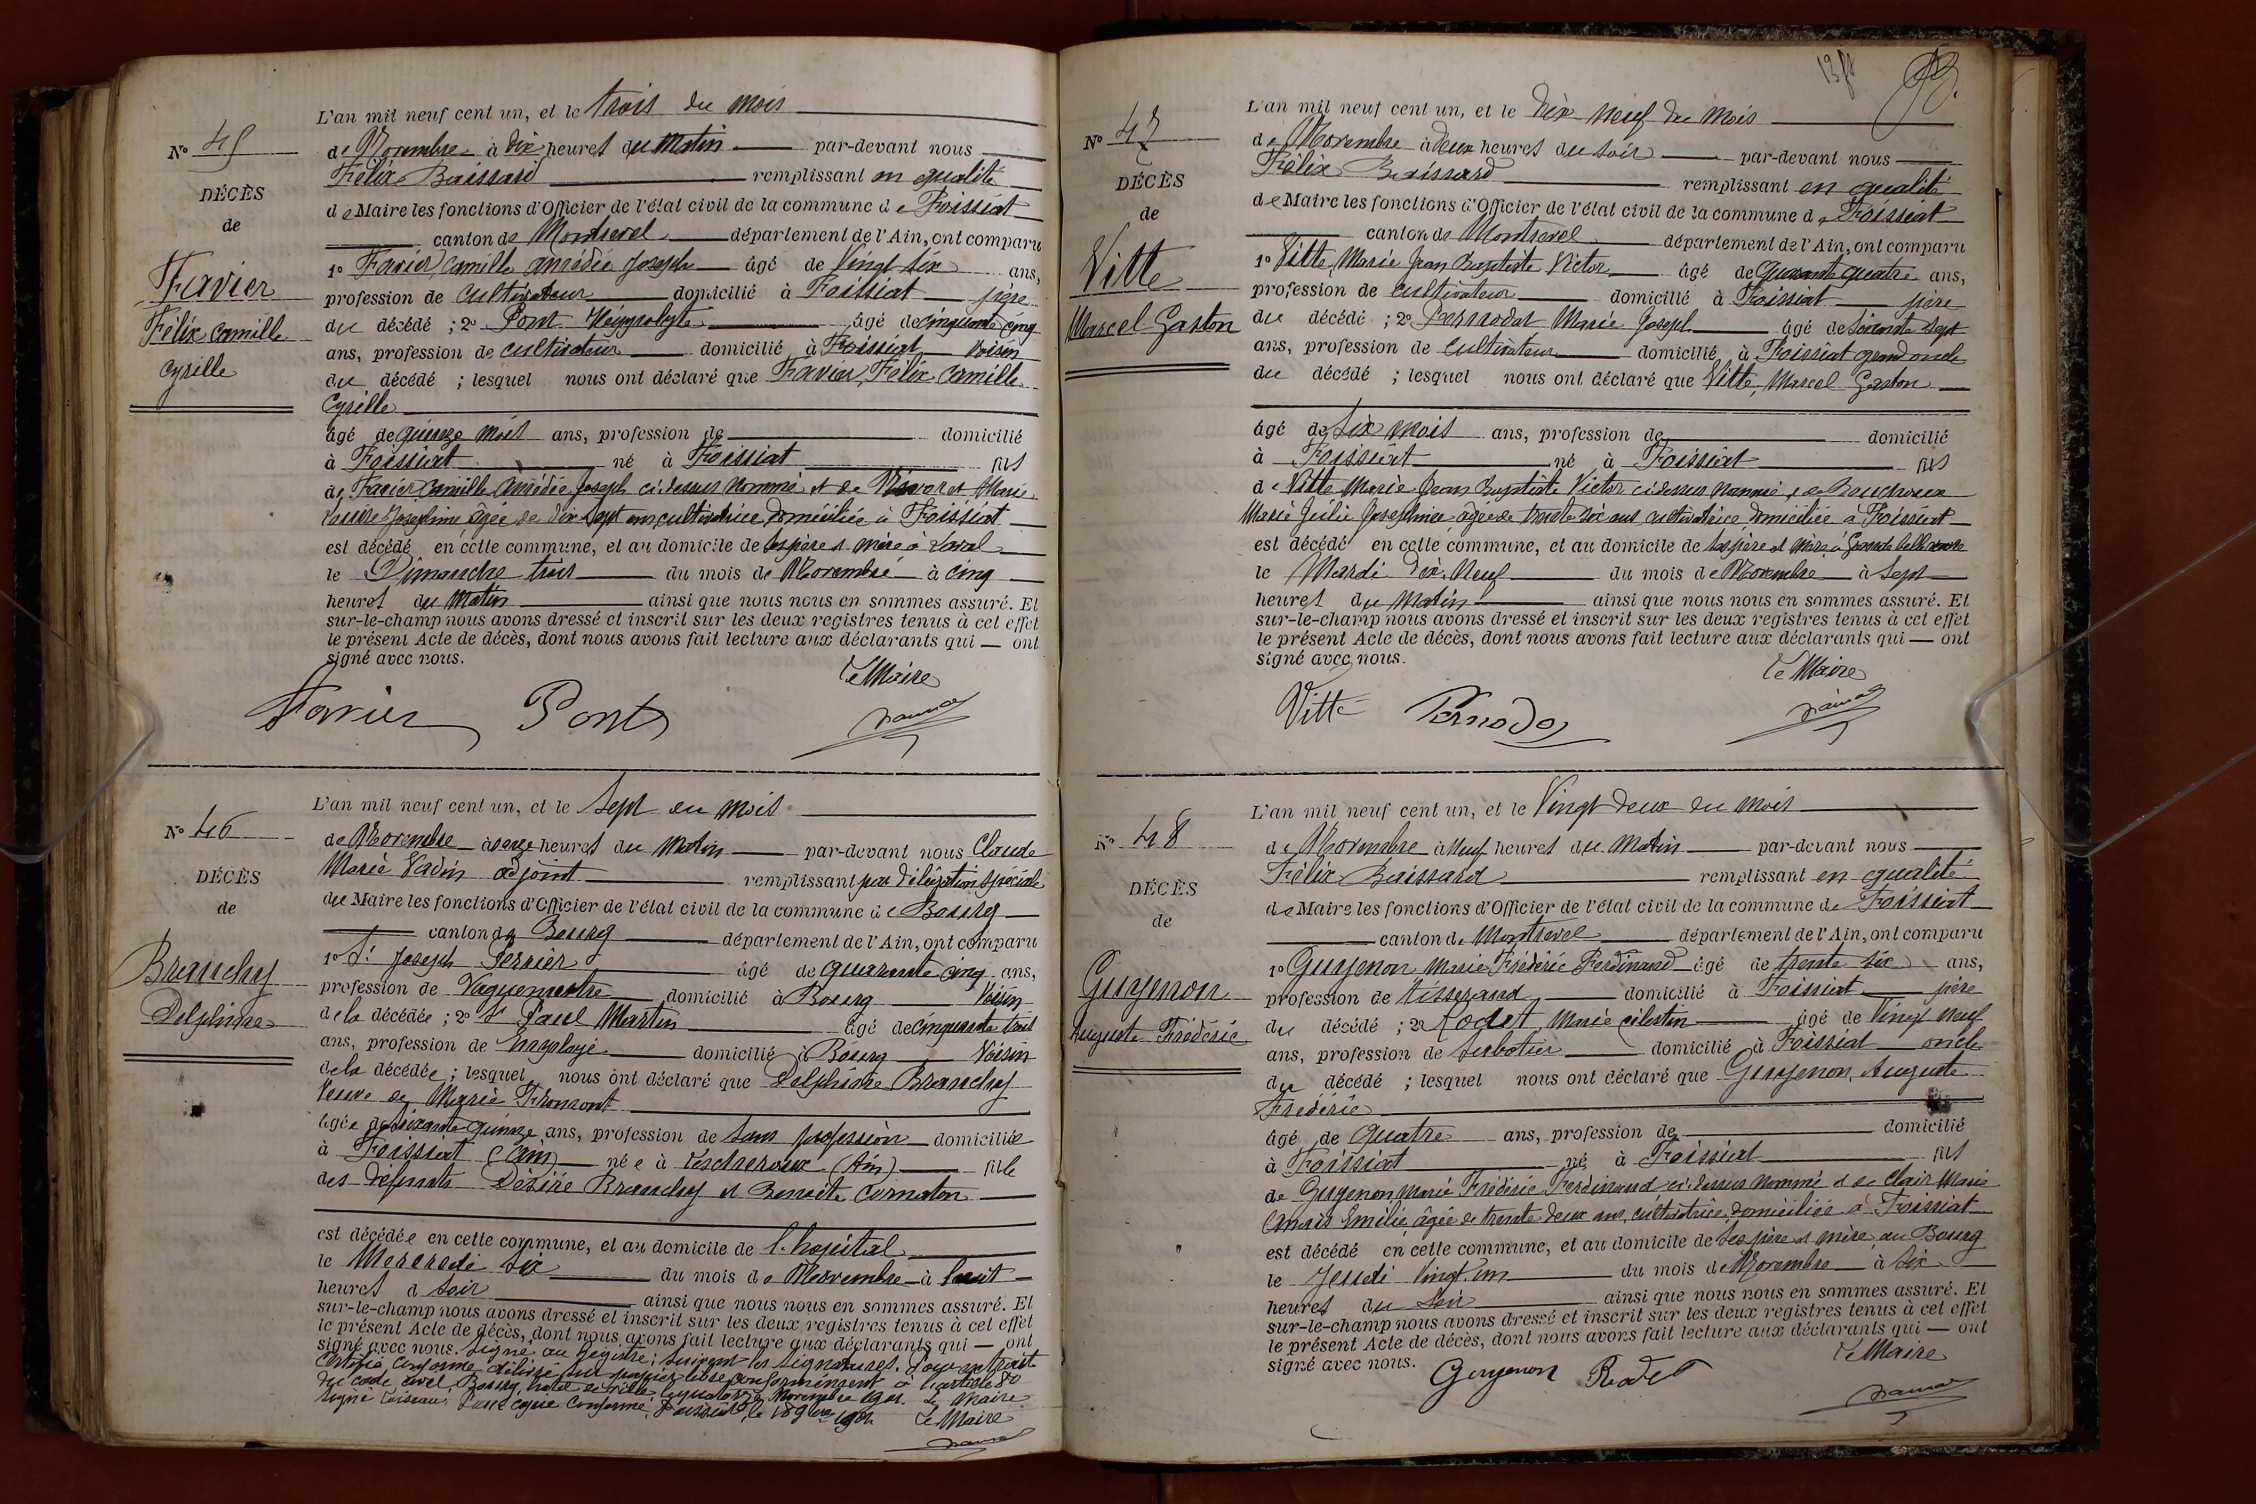 N° 45
DÉCÈS
de
Favier
Félix Camille
Cyrille
L'an mil neuf cent un, et le trois du mois
de Novembre à dix heures du matin par-devant nous
Félix Baissard remplissant en qualité
de Maire les fonctions d'Officier de l'état civil de la commune de Foissiat
canton de Montrevel département de l'Ain, ont comparu
1° Favier Camille Amédée Joseph âgé de Vingt six ans,
profession de cultivateur domicilié à Foissiat père
du décédé ; 2° Pont âgé de cinquante cinq
ans, profession de cultivateur domicilié à Foissiat Voisin
du décédé ; lesquel nous ont déclaré que Favier, Félix Camille
Cyrille
âgé de quinze mois ans, profession de domicilié
à Foissiat né à Foissiat fils
de Favier Camille Amédée Joseph ci-dessus nommé et de Marie
Joséphine âgée de dix sept ans, cultivatrice domiciliée à Foissiat
est décédé en cette commune, et au domicile de ses père et mère à Laval
le Dimanche trois du mois de Novembre à cinq
heures du Matin ainsi que nous nous en sommes assuré. Et
sur-le-champ nous avons dressé et inscrit sur les deux registres tenus à cet effet
le présent Acte de décès, dont nous avons fait lecture aux déclarants qui — ont
signé avec nous.
Le Maire
Favier Pont
N° 46
DÉCÈS
de
Branchy
Delphine
L'an mil neuf cent un, et le Sept du mois
de Novembre à onze heures du Matin par-devant nous Claude
Marie Vadin adjoint remplissant par délégation spéciale
du Maire les fonctions d'Officier de l'état civil de la commune de Bourg
canton de Bourg département de l'Ain, ont comparu
1° Sr Joseph Perrier âgé de quarante cinq ans,
profession de Vaguemestre domicilié à Bourg Voisin
de la décédée ; 2° Sr Paul Martin âgé de cinquante huit
ans, profession de employé domicilié à Bourg Voisin
de la décédée ; lesquel nous ont déclaré que Delphine Branchy
Veuve de Marie Fromont
âgée de soixante quinze ans, profession de Sans profession domiciliée
à Foissiat (Ain) née à Lescheroux (Ain) fille
des défunts Désiré Branchy et Benoite Cornaton
est décédée en cette commune, et au domicile de l'hopital
le Mercredi six du mois de Novembre à huit
heures d soir ainsi que nous nous en sommes assuré. Et
sur-le-champ nous avons dressé et inscrit sur les deux registres tenus à cet effet
le présent Acte de décès, dont nous avons fait lecture aux déclarants qui — ont
signé avec nous. Signé au registre ; suivent les signatures. Pour extrait
certifié conforme délivré sur papier libre conformément à l'article 80
du code civil, Bourg, hotel de ville, le quatorze Novembre 1901. Le Maire
signé Loiseau. Pour copie conforme, Foissiat, le 18 9bre 1901 Le Maire
N° 47
DÉCÈS
de
Vitte
Marcel Gaston
L'an mil neuf cent un, et le Dix neuf du mois
de Novembre à deux heures du soir par-devant nous
Félix Baissard remplissant en qualité
de Maire les fonctions d'Officier de l'état civil de la commune de Foissiat
canton de Montrevel département de l'Ain, ont comparu
1° Vitte, Marie Jean Baptiste Victor âgé de Quarante quatre ans,
profession de cultivateur domicilié à Foissiat père
du décédé ; 2° Pernodat Marie Joseph âgé de soixante sept
ans, profession de cultivateur domicilié à Foissiat grand oncle
du décédé ; lesquel nous ont déclaré que Vitte, Marcel Gaston
âgé de Six mois ans, profession de domicilié
à Foissiat né à Foissiat fils
de Vitte Marie Jean Baptiste Victor ci-dessus nommé, et de Bouchoux
Marie Julie Joséphine âgée de trente six ans cultivatrice domiciliée à Foissiat
est décédé en cette commune, et au domicile de ses père et mère à Grande
le Mardi dix Neuf du mois de Novembre à Sept
heures du Matin ainsi que nous nous en sommes assuré. Et
sur-le-champ nous avons dressé et inscrit sur les deux registres tenus à cet effet
le présent Acte de décès, dont nous avons fait lecture aux déclarants qui — ont
signé avec nous.
Le Maire
Vitte
N° 48
DÉCÈS
de
Guyenon
Auguste Frédéric
L'an mil neuf cent un, et le Vingt deux du mois
de Novembre à Neuf heures du Matin par-devant nous
Félix Baissard remplissant en qualité
de Maire les fonctions d'Officier de l'état civil de la commune de Foissiat
canton de Montrevel département de l'Ain, ont comparu
1° Guyenon Marie Frédéric Ferdinand âgé de trente six ans,
profession de tisserand domicilié à Foissiat père
du décédé ; 2° Rodet, Marie Célestin âgé de Vingt neuf
ans, profession de Sabotier domicilié à Foissiat oncle
du décédé ; lesquel nous ont déclaré que Guyenon, Auguste
Frédéric
âgé de quatre ans, profession de domicilié
à Foissiat né à Foissiat fils
de Guyenon Marie Frédéric Ferdinand ci-dessus nommé et de Clair Marie
Anaïs Emilie, âgée de trente deux ans, cultivatrice domiciliée à Foissiat
est décédé en cette commune, et au domicile de ses père et mère au Bourg
le Jeudi Vingt un du mois de Novembre à six
heures du Soir ainsi que nous nous en sommes assuré. Et
sur-le-champ nous avons dressé et inscrit sur les deux registres tenus à cet effet
le présent Acte de décès, dont nous avons fait lecture aux déclarants qui — ont
signé avec nous.
Le Maire
Guyenon Rodet